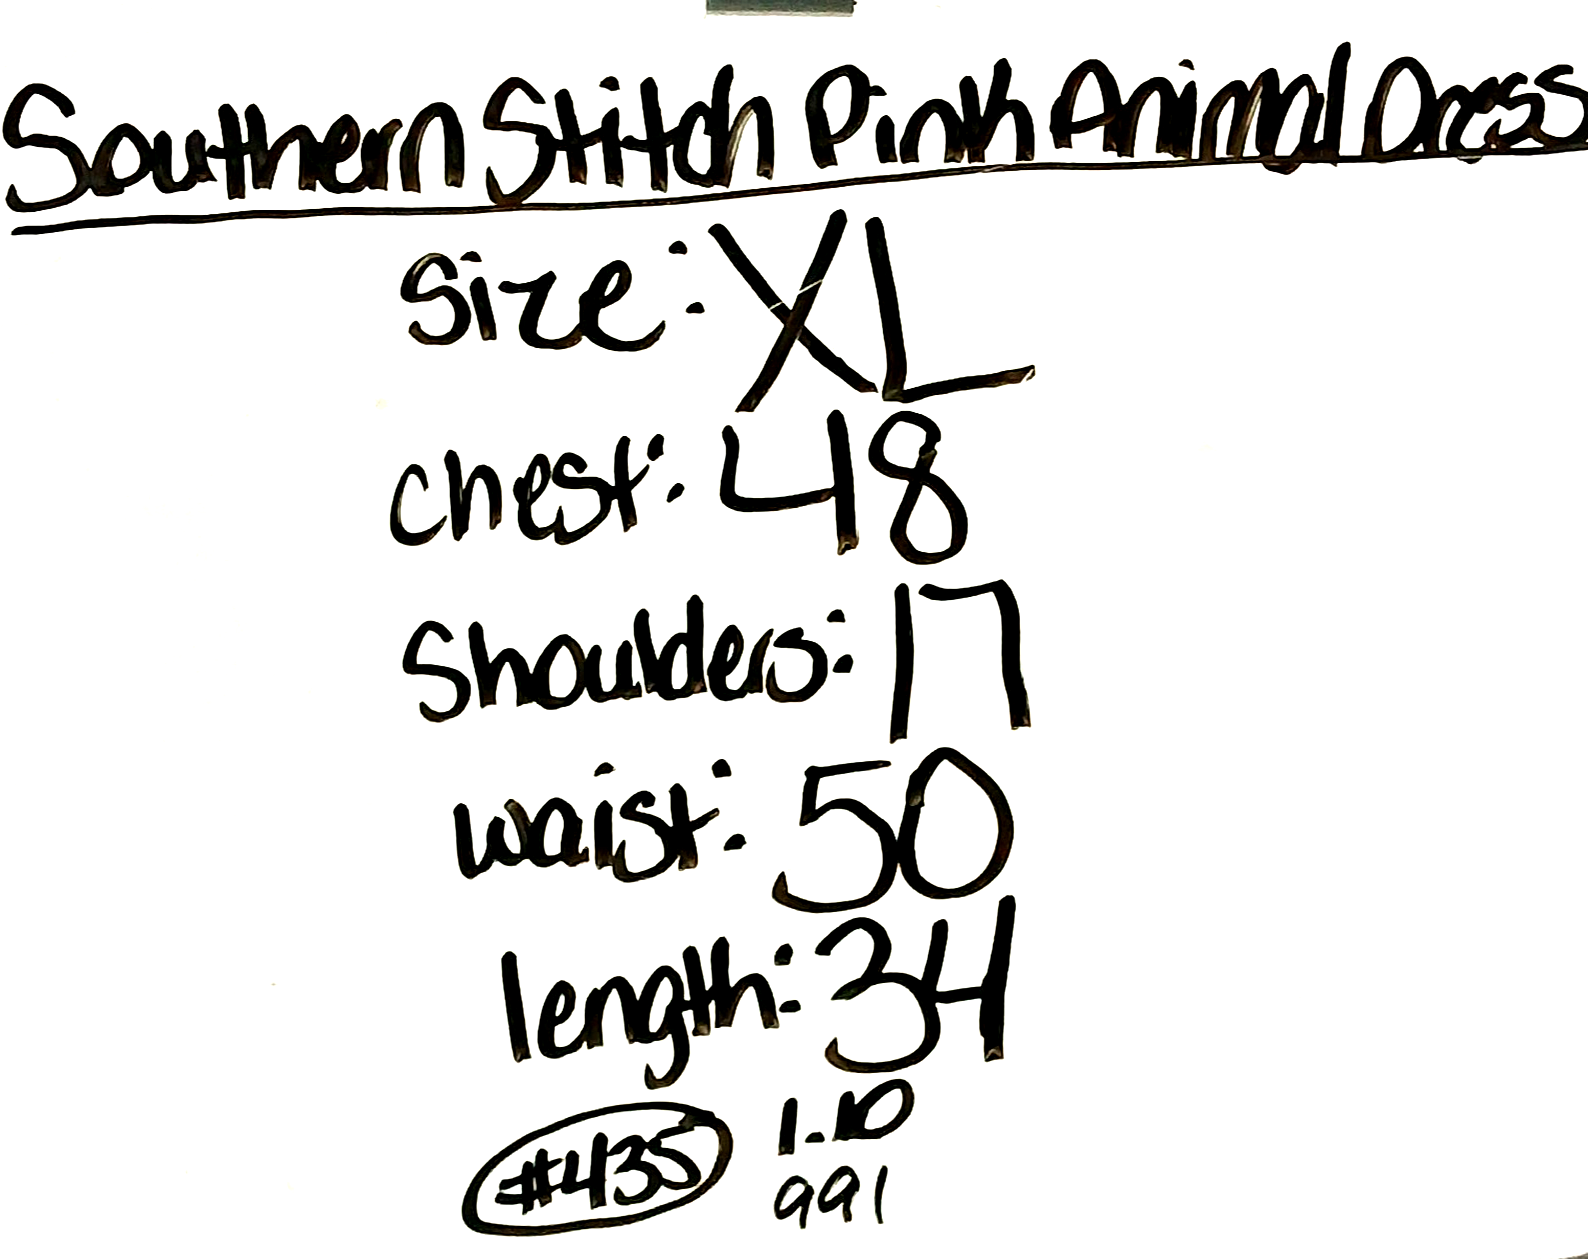 Southern Stitch Pink Animal Dress
Size: XL
chest: 48
Shoulders: 17
waist: 50
length: 34
#435 1.10
991